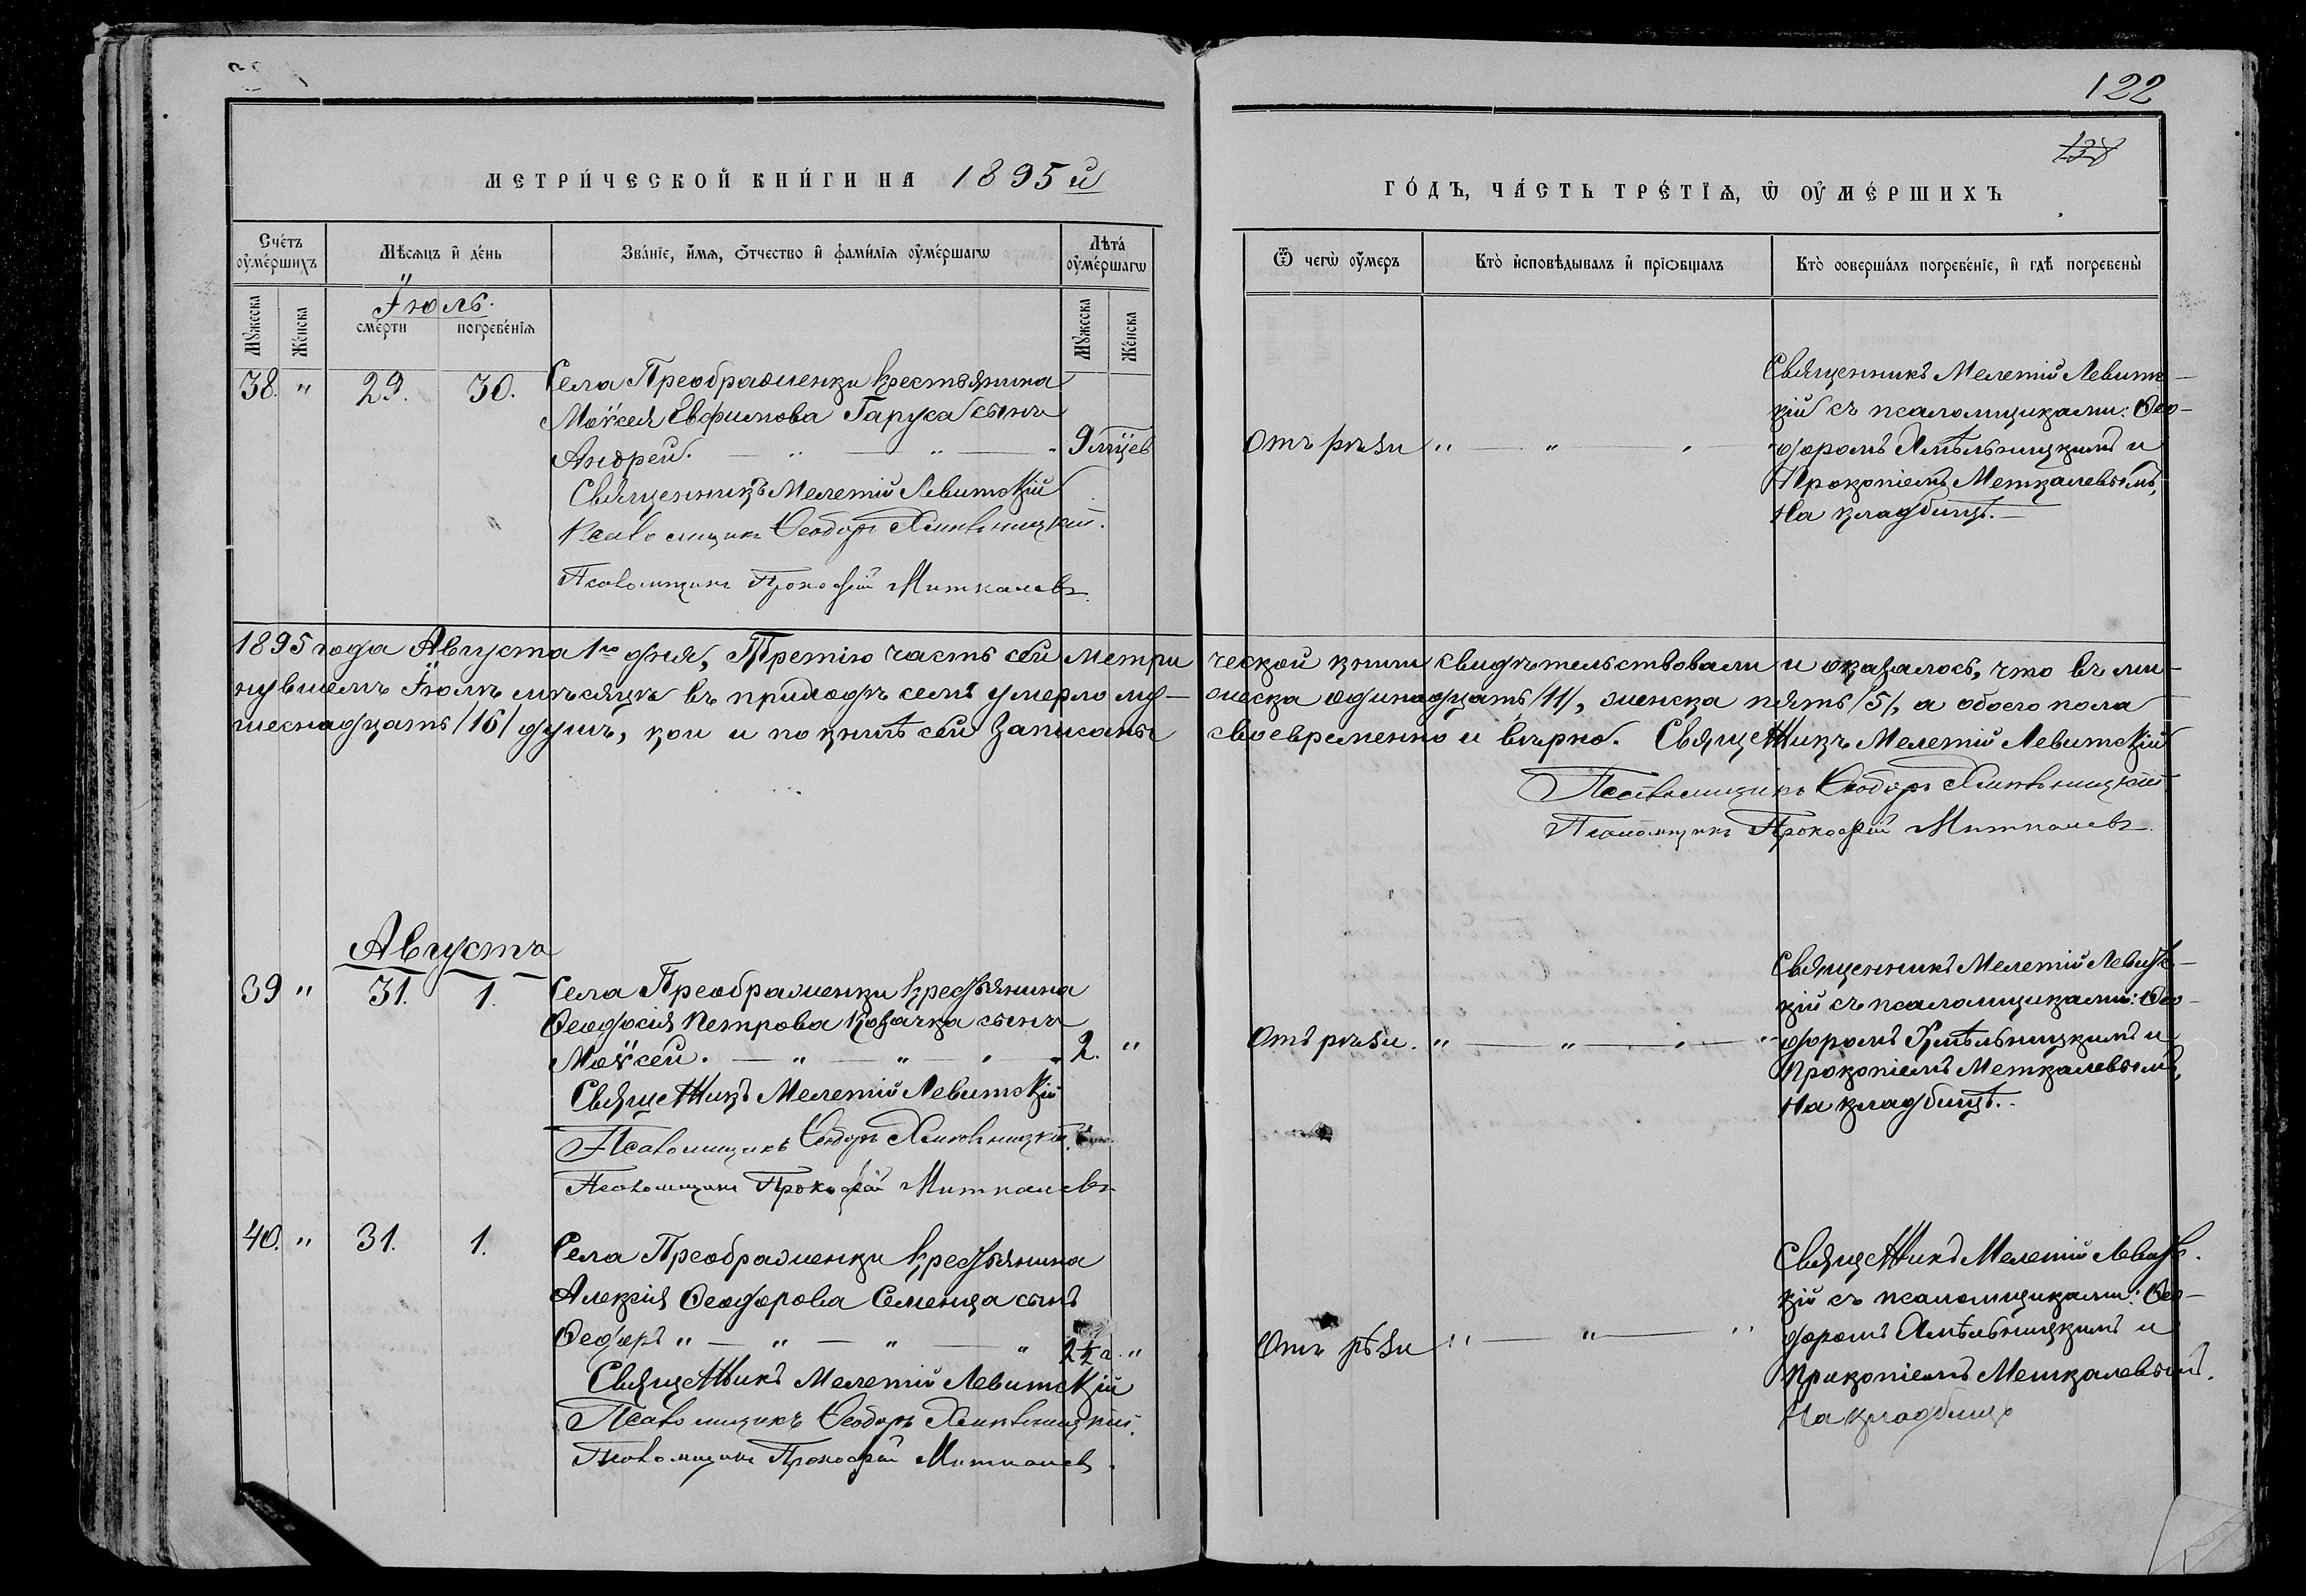 122
138
МЕТРИ́ЧЕСКОЙ КНИ́ГИ НА 1895 й
ГО́ДЪ, ЧА́СТЬ ТРЕ́ТІѦ, Ѡ҆ ОУ҆МЕ́РШИХЪ
Сче́тъ оу҆ме́ршихъ
Мѣ́сѧцъ и҆ де́нь
Зва́ніе, и҆́мѧ, ѻ҆́тчество и҆ фамилі́ѧ оу҆ме́ршагѡ
Лѣта̀ оу҆ме́ршагѡ
Ѿ чегѡ̀ оу҆́меръ
Кто̀ и҆сповѣ́дывалъ и҆ прїѻбща́лъ
Кто̀ соверша́лъ погребе́ніе, и҆ гдѣ̀ погребены̀
Мꙋ́жеска
Же́нска
Іюль.
сме́рти
погребе́нія
Мꙋ́жеска
Же́нска
38. " 29. 30. Села Преображенки крестьянина
Моѵсея Евфимова Гаруса сынъ
Андрей. — " — " — 9 м-цев
Священникъ Мелетій Левитскій
Псаломщикъ Ѳеодоръ Хмѣльницкій.
Псаломщикъ Прокофій Миткалевъ
Отъ рѣзи " — " —
Священникъ Мелетій Левит-
кій съ псаломщиками: Ѳео-
доромъ Хмѣльницкимъ и
Прокопіемъ Меткалевымъ,
На кладбищѣ.—
1895 года Августа 1го дня, Третію часть сей метри ческой книги свидѣтельствовали и оказалось, что въ ми-
нувшемъ Іюлѣ мѣсяцѣ въ приходѣ семъ умерло му- жеска одинадцать /11/, женска пять /5/, а обоего пола
шеснадцать /16/ душъ, кои и по книгѣ сей записаны своевременно и вѣрно. Священникъ Мелетій Левитскій
Псаломщикъ Ѳеодоръ Хмѣльницкій
Псаломщикъ Прокофій Миткалевъ
Августъ
39 " 31. 1. Села Преображенки крестьянина
Ѳеодосія Петрова Козачка сынъ
Моѵсей. — " — " — 2. "
Священникъ Мелетій Левитскій
Псаломщикъ Ѳеодоръ Хмѣльницкій.
Псаломщикъ Прокофій Миткалевъ
Отъ рѣзи. " — " — "
Священникъ Мелетій Левит-
кій съ псаломщиками: Ѳео-
доромъ Хмѣльницкимъ и
Прокопіемъ Меткалевымъ,
На кладбищѣ.
40. " 31. 1. Села Преображенки крестьянина
Алексія Ѳеодорова Семенца сынъ
Ѳедоръ " — " — " — " 2½ г. "
Священникъ Мелетій Левитскій
Псаломщикъ Ѳеодоръ Хмѣльницкій.
Псаломщикъ Прокофій Миткалевъ
Отъ рѣзи " — " — "
Священникъ Мелетій Левит-
кій съ псаломщиками: Ѳео-
доромъ Хмѣльницкимъ и
Прокопіемъ Меткалевымъ.
На кладбищѣ